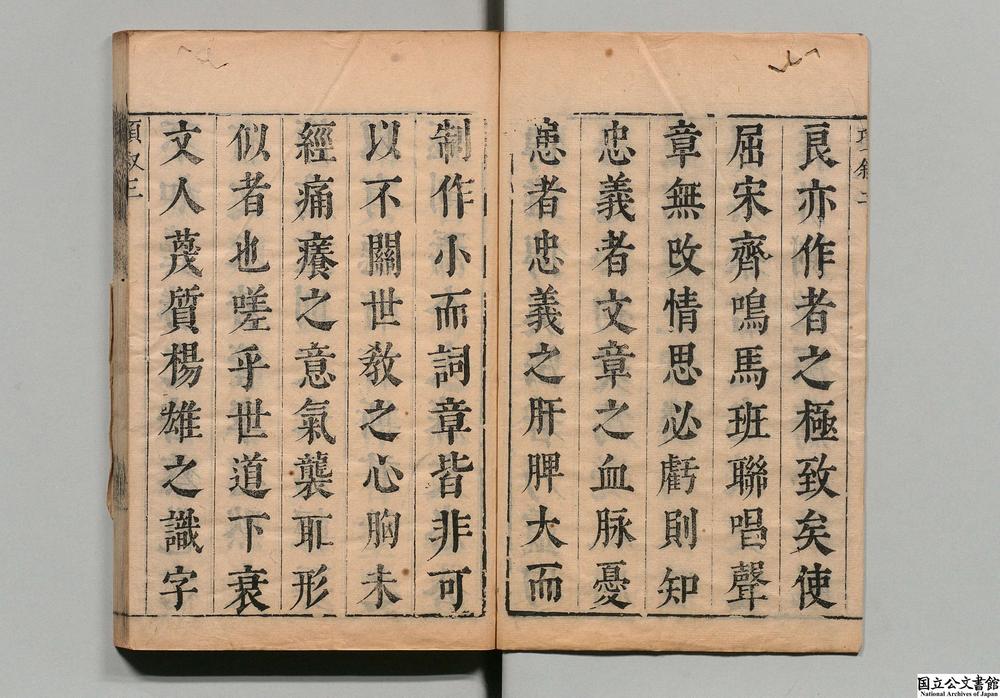 良亦作者之極致矣使
屈宋齊鳴馬班聯唱聲
章無改情思必虧則知
忠義者文章之血脉憂
患者忠義之肝脾大而
制作小而詞章皆非可
以不關世教之心胸未
經痛癢之意氣襲取形
似者也嗟乎世道下衰
文人蔑質楊雄之識字
項叙三
国立公文書館
National Archives of Japan